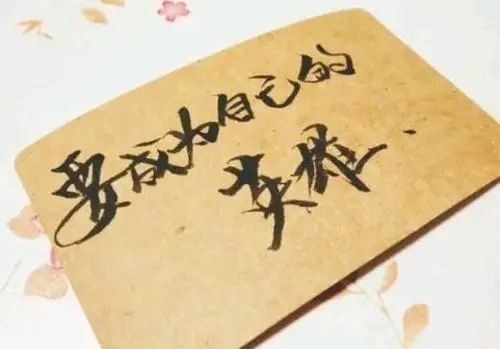 要成为自己的
英雄.